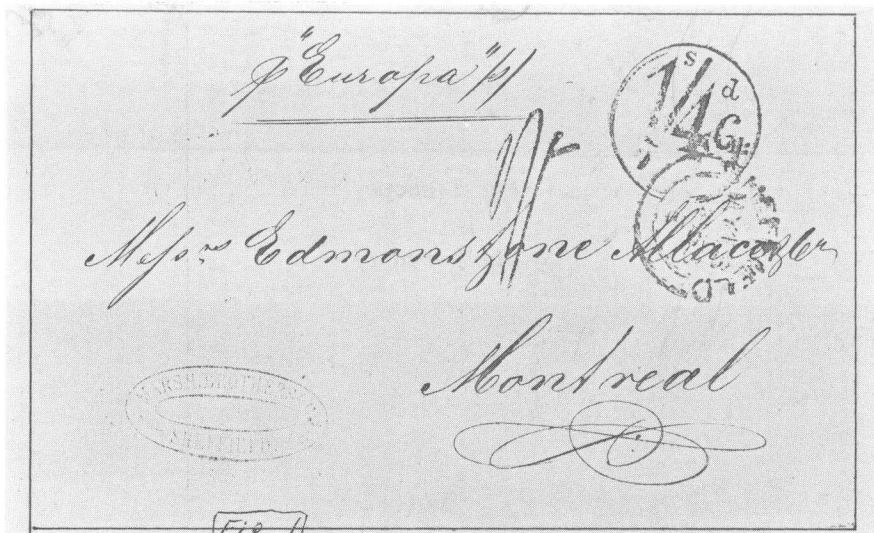 p "Europa" p/
1s/4d Cy.
Messrs Edmonstone Allan & Co
Montreal
MARSH BROTHERS & Co
SHEFFIELD
Fig. 1